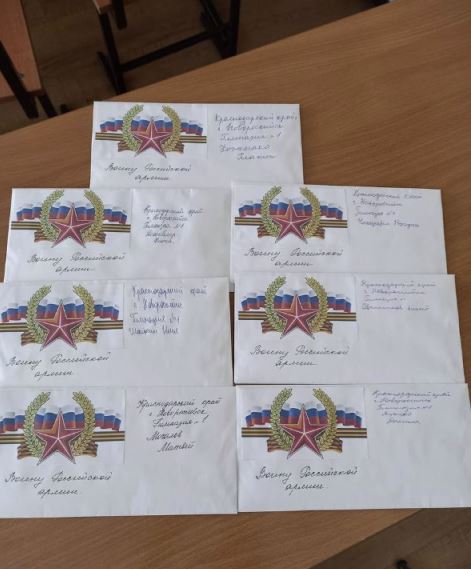 Краснодарский край
г. Новороссийск
Гимназия №1
Воину Российской
армии.
Краснодарский край
г. Новороссийск
Гимназия №1
Воину Российской
армии.
Краснодарский край
г. Новороссийск
Гимназия №1
Воину Российской
армии.
Краснодарский край
г. Новороссийск
Гимназия №1
Воину Российской
армии.
Краснодарский край
г. Новороссийск
Гимназия №1
Воину Российской
армии.
Краснодарский край
г. Новороссийск
Гимназия №1
Матвей
Воину Российской
армии.
Краснодарский край
г. Новороссийск
Гимназия №1
Воину Российской
армии.